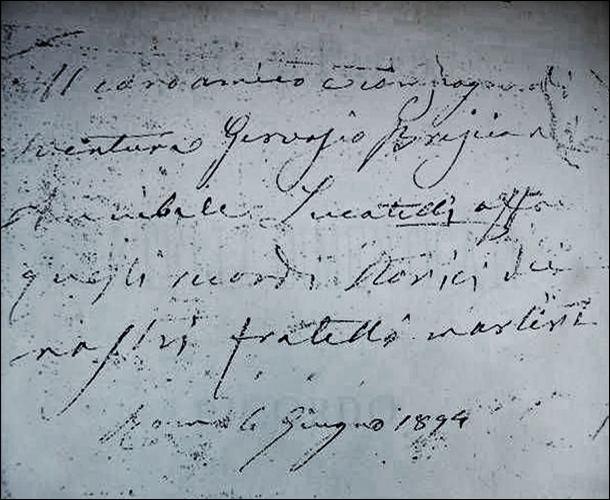 Al caro amico e compagno di
ventura Gervasio
Annibale Lucatelli offre
questi ricordi storici dei
nostri fratelli martiri
Roma 6 Giugno 1894